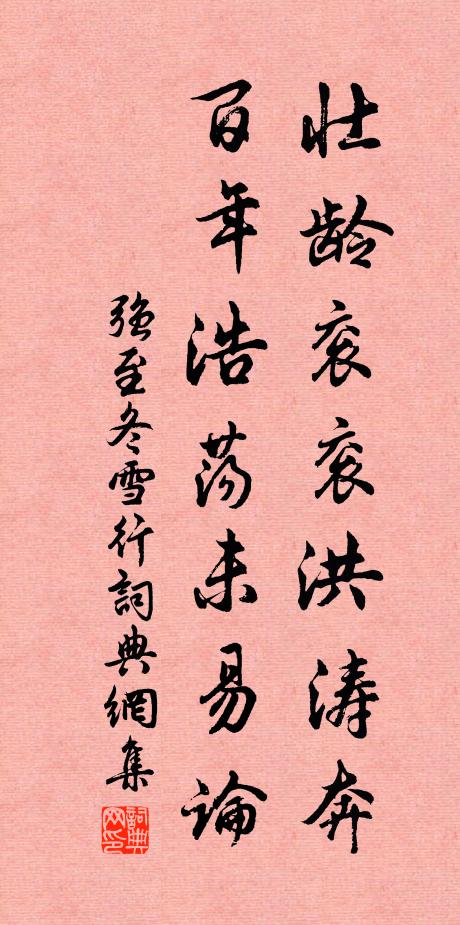 壮龄衮衮洪涛奔
百年浩荡未易论
强至冬雪行詞典網集
詞典网印